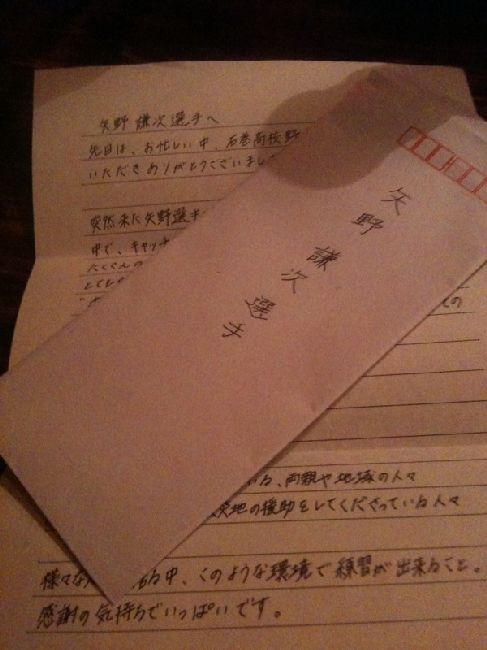 矢野 謙次 選手へ
先日は、お忙しい中、石巻高校野
いただきありがとうございまし
突然来た矢野選手
中で、キャッチ
たくさんの
矢野謙次選手
の
いる、両親や地域の人々
災地の援助をしてくださっている人々
様々な 中、このような環境で練習が出来ること。
感謝の気持ちでいっぱいです。